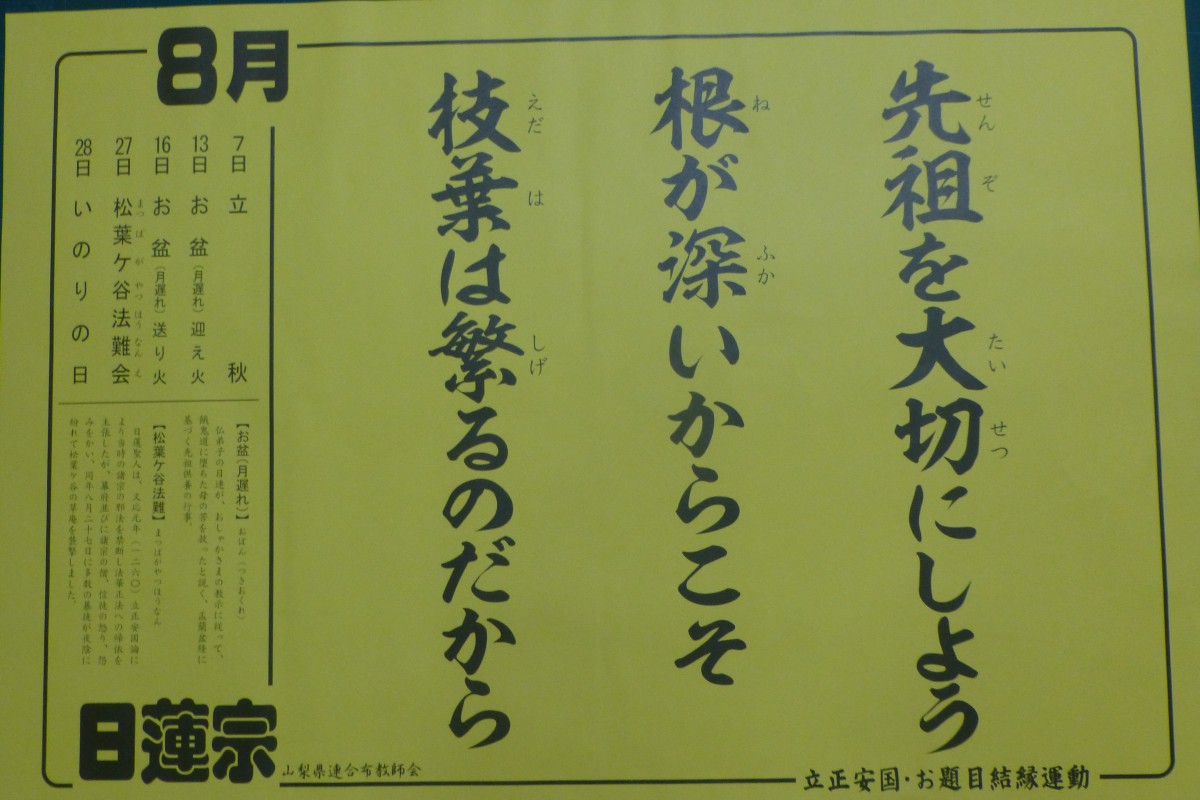 先祖を大切にしよう
せん ぞ たい せつ
根が深いからこそ
ね ふか
枝葉は繁るのだから
えだ は しげ
8月
7日 立秋
13日 お盆(月遅れ)迎え火
16日 お盆(月遅れ)送り火
27日 松葉ケ谷法難会
まつ ば が やつ ほう なん え
28日 いのりの日
【お盆(月遅れ)】 おぼん(つきおくれ)
仏弟子の目連が、おしゃかさまの教示に従って、
餓鬼道に堕ちた母の苦を救ったと説く、盂蘭盆経に
基づく先祖供養の行事。
【松葉ケ谷法難】 まつばがやつほうなん
日蓮聖人は、文応元年(一二六〇)立正安国論に
より当時の諸宗の邪法を禁断し法華正法への帰依を
主張したが、幕府並びに諸宗の僧、信徒の怒り、怨
みをかい、同年八月二十七日に多数の暴徒が夜陰に
紛れて松葉ケ谷の草庵を襲撃しました。
日蓮宗
山梨県連合布教師会
立正安国・お題目結縁運動